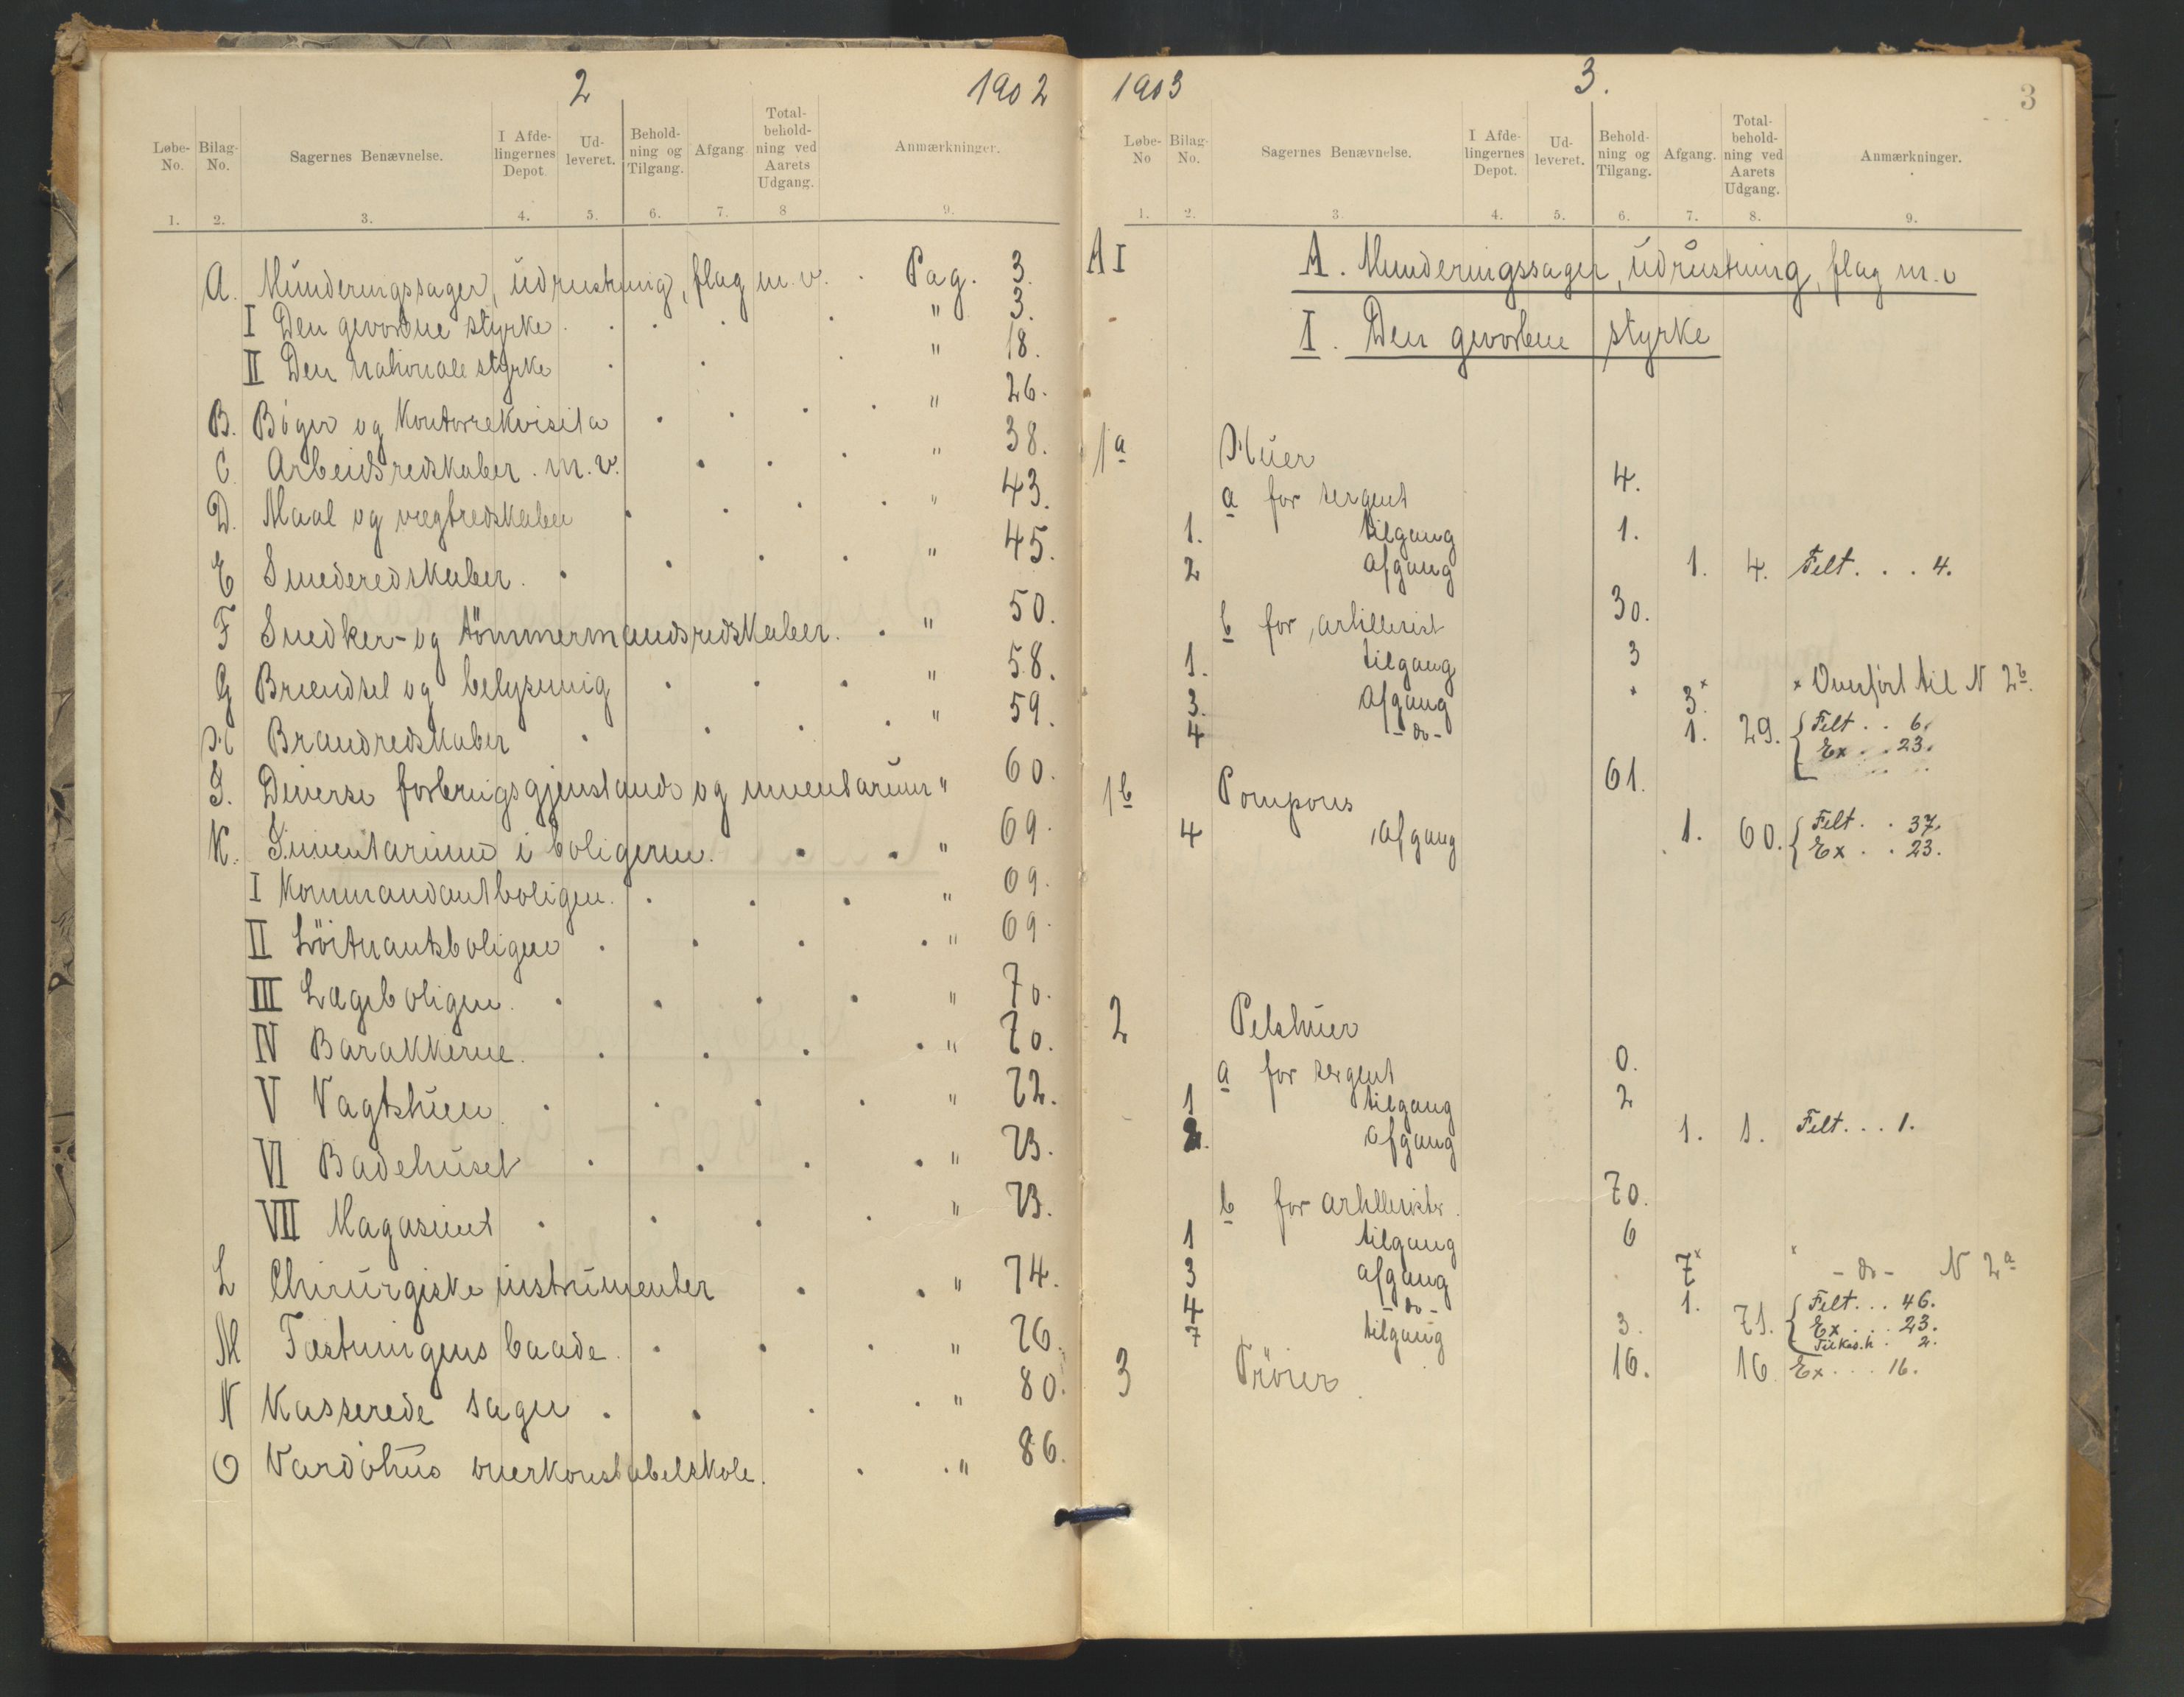 2 1902
Løbe-No. Bilag-No. Sagernes Benævnelse. I Afdelingernes Depot. Udleveret. Beholdning og Tilgang. Afgang Totalbeholdning ved Aarets Udgang. Anmærkninger.
1. 2. 3. 4. 5. 6. 7. 8 9.
A. Munderingssager, udrustning, flag m.v. . Pag. 3.
I Den gevorbne styrke . . . . . " 3.
II Den nationale styrke . . . " 18.
B. Bøger og kontorrekvisita . . . . " 26.
C. Arbeidsredskaber. m.v. . . . " 38.
D. Maal og vægtredskaber . . . . " 43.
E Smederedskaber. . . . . " 45.
F Snedker- og tömmermandsredskaber. . " 50.
G Brændsel og belysning . . . " 58.
H Brandredskaber . . . . " 59.
J. Diverse forbrugsgjenstande og inventarium " 60.
K. Inventarium i boligerne. . . " 69.
I Kommandantboligen. . . . " 69.
II Löitnantsboligen . . . . " 69.
III Lægeboligen. . . . . " 70.
IV Barakkerne. . . . . " 70.
V Vagtshuen . . . . " 72.
VI Badehuset . . . . " 73.
VII Magasinet . . . . " 73.
L Chirurgiske instrumenter . . " 74.
M Fæstningens baade. . . . " 76.
N Kasserede sager . . . . " 80.
O Vardöhus overkonstabelskole. . . " 86.
1903 3. 3
Løbe-No Bilag-No. Sagernes Benævnelse. I Afdelingernes Depot. Udleveret. Beholdning og Tilgang. Afgang. Totalbeholdning ved Aarets Udgang. Anmærkninger.
1. 2. 3. 4. 5. 6. 7. 8. 9.
A I A. Munderingssager, udrustning, flag m.v
I. Den gevorbne styrke
1a Huer
a for sergent 4.
1. tilgang 1.
2 afgang 1. 4. Felt. . . 4.
b for artillerist 30.
1. tilgang 3
3. Afgang 3.x x Overført til N 2b.
4 -do- 1. 29. { Felt . . 6.
Ex . . 23.
1b Pompons 61.
4 Afgang 1. 60. { Felt. . 37.
Ex . . 23.
2 Pelshuer
a for sergent 0.
1 tilgang 2
2. afgang 1. 1. Felt. . . 1.
b for artillerister. 70.
1 tilgang 6
3 afgang 7x x -do- N 2a
4 -do- 1. { Felt. . . 46.
7 tilgang 3. 71. Ex . . . 23.
2.
3 Tröier. 16. 16. Ex . . . 16.